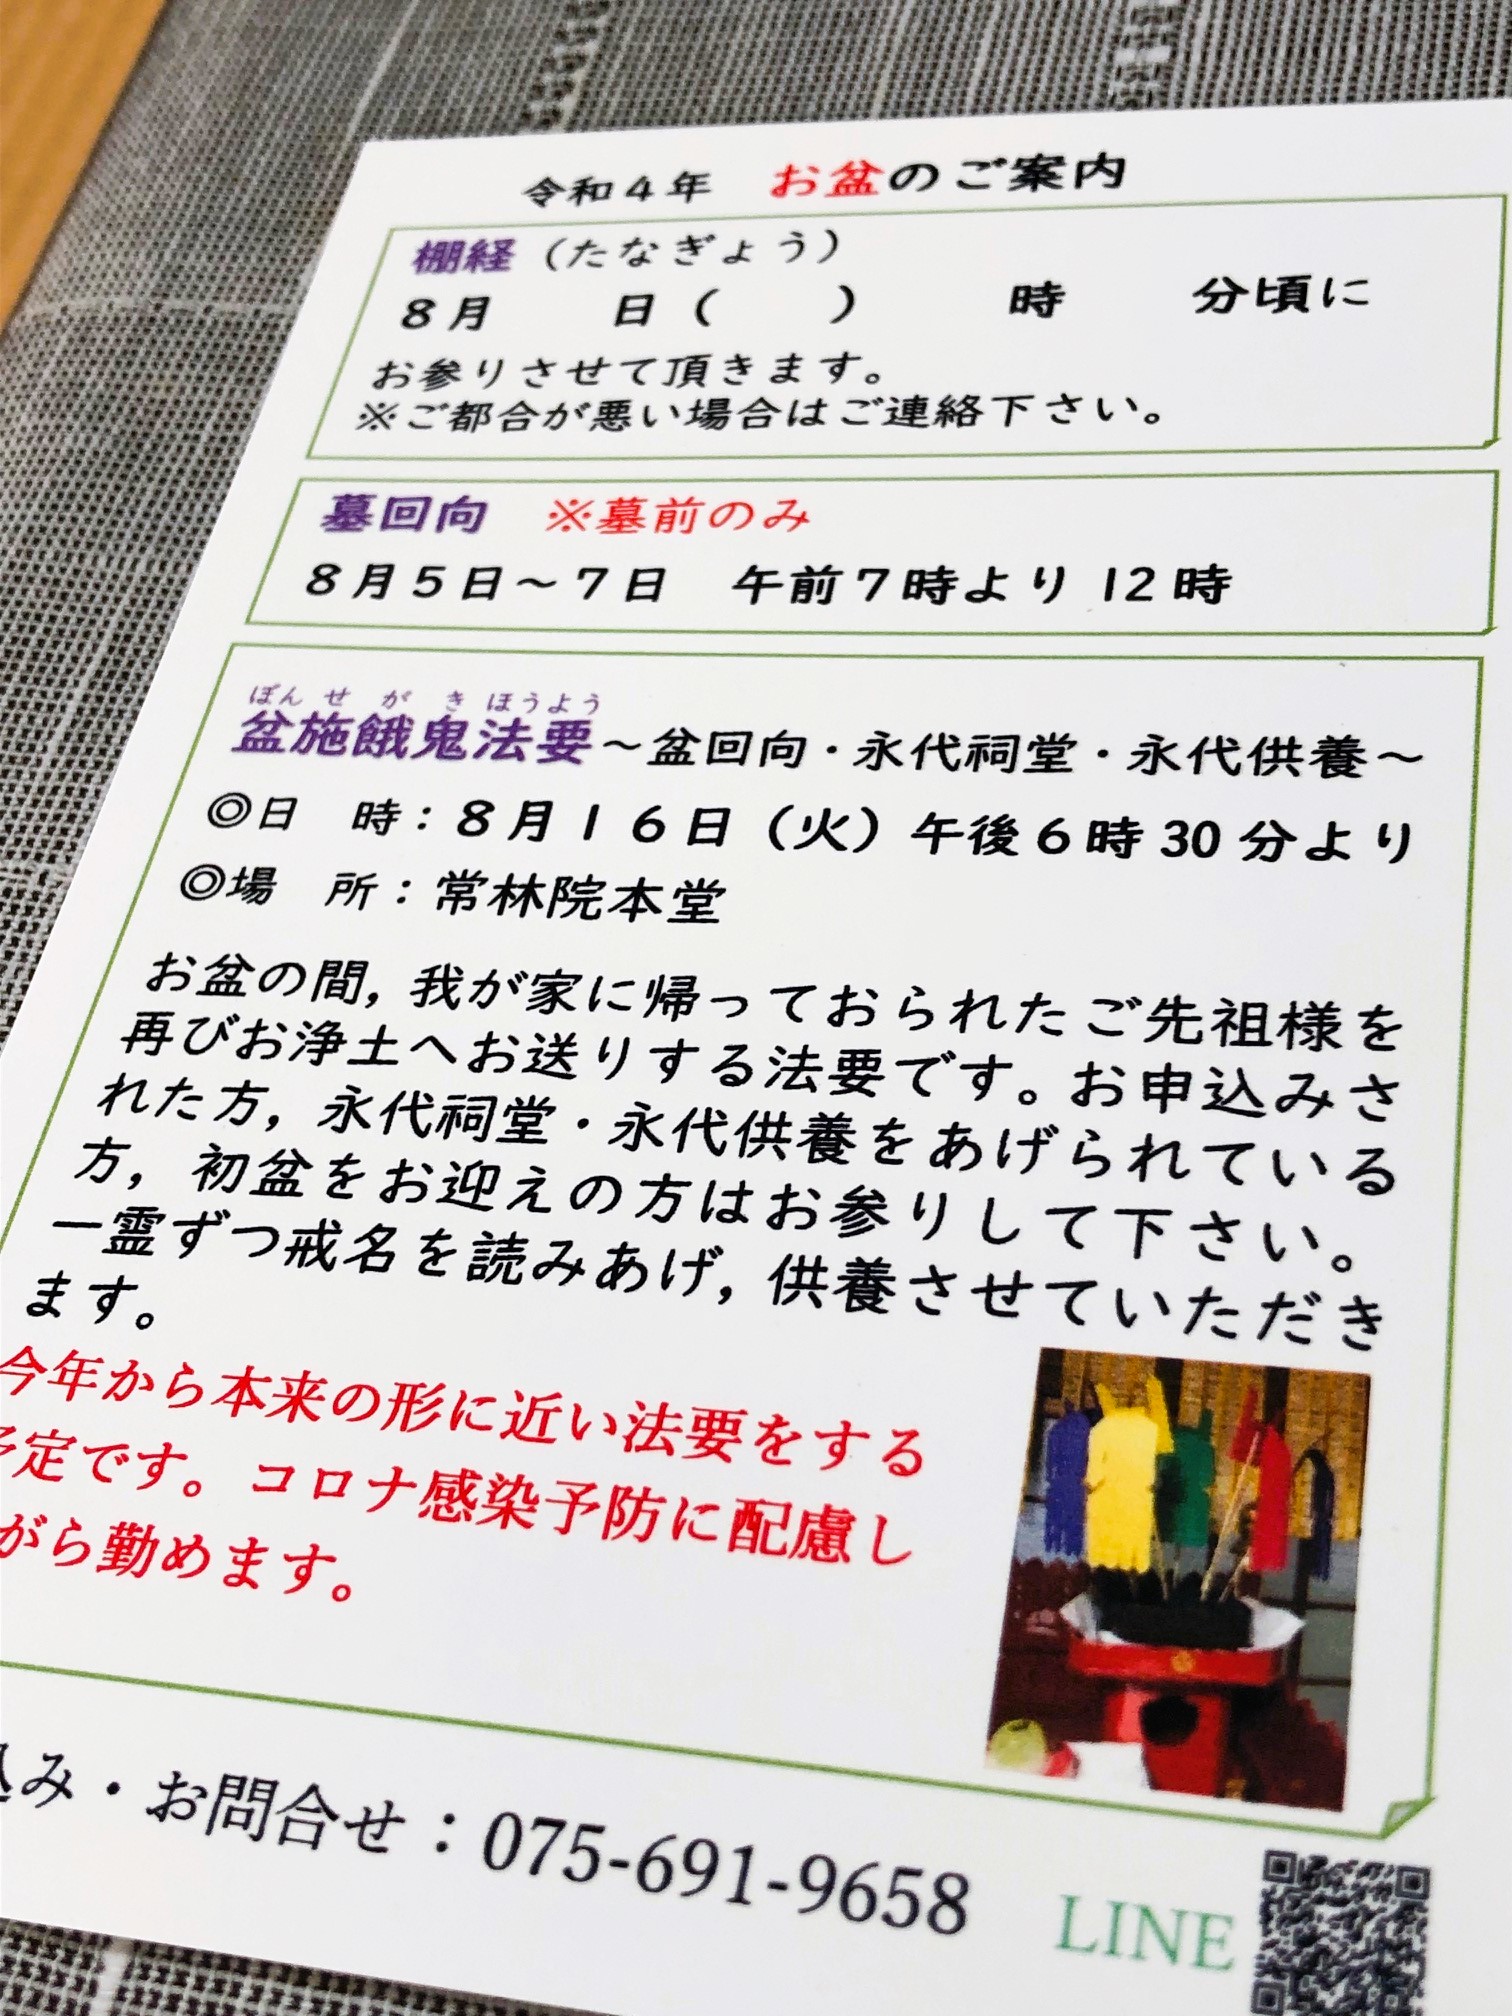 令和４年　お盆のご案内
棚経（たなぎょう）
８月　　日（　　）　　時　　分頃に
お参りさせて頂きます。
※ご都合が悪い場合はご連絡下さい。
墓回向　※墓前のみ
８月５日～７日　午前７時より 12 時
ぼんせがきほうよう
盆施餓鬼法要～盆回向・永代祠堂・永代供養～
◎日　時：８月１６日（火）午後６時 30 分より
◎場　所：常林院本堂
お盆の間，我が家に帰っておられたご先祖様を
再びお浄土へお送りする法要です。お申込みさ
れた方，永代祠堂・永代供養をあげられている
方，初盆をお迎えの方はお参りして下さい。
一霊ずつ戒名を読みあげ，供養させていただき
ます。
今年から本来の形に近い法要をする
予定です。コロナ感染予防に配慮し
がら勤めます。
込み・お問合せ：075-691-9658
LINE